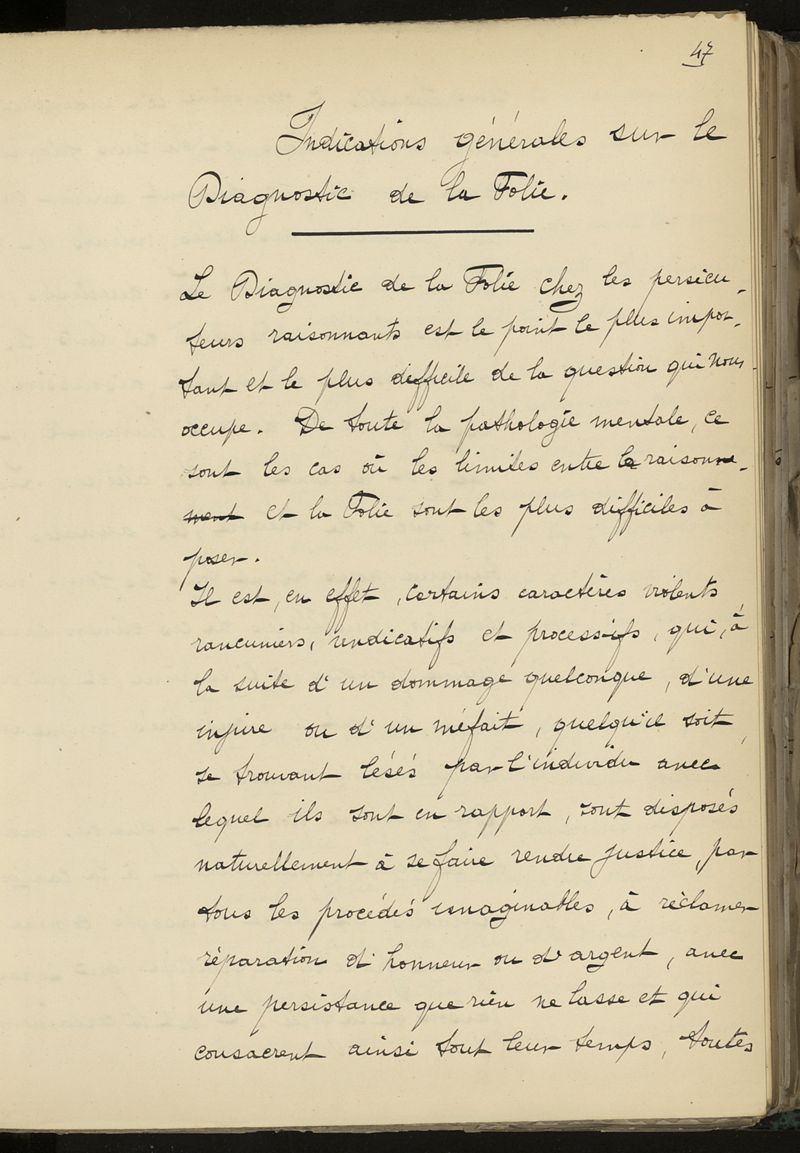 47
Indications générales sur le
Diagnostic de la Folie.
Le Diagnostic de la Folie chez les persécu-
teurs raisonnants est le point le plus impor-
tant et le plus difficile de la question qui nous
occupe. De toute la pathologie mentale, ce
sont les cas où les limites entre la raisonne-
ment et la Folie sont les plus difficiles à
poser.
Il est, en effet, certains caractères violents
rancuniers, vindicatifs et processifs, qui, à
la suite d'un dommage quelconque, d'une
injure ou d'un méfait, quelqu'il soit,
se trouvant lésés par l'individu avec
lequel ils sont en rapport, sont disposés
naturellement à se faire rendre justice, par
tous les procédés imaginables, à réclamer
réparation d'honneur ou d'argent, avec
une persistance que rien ne lasse et qui
consacrent ainsi tout leur temps, toutes